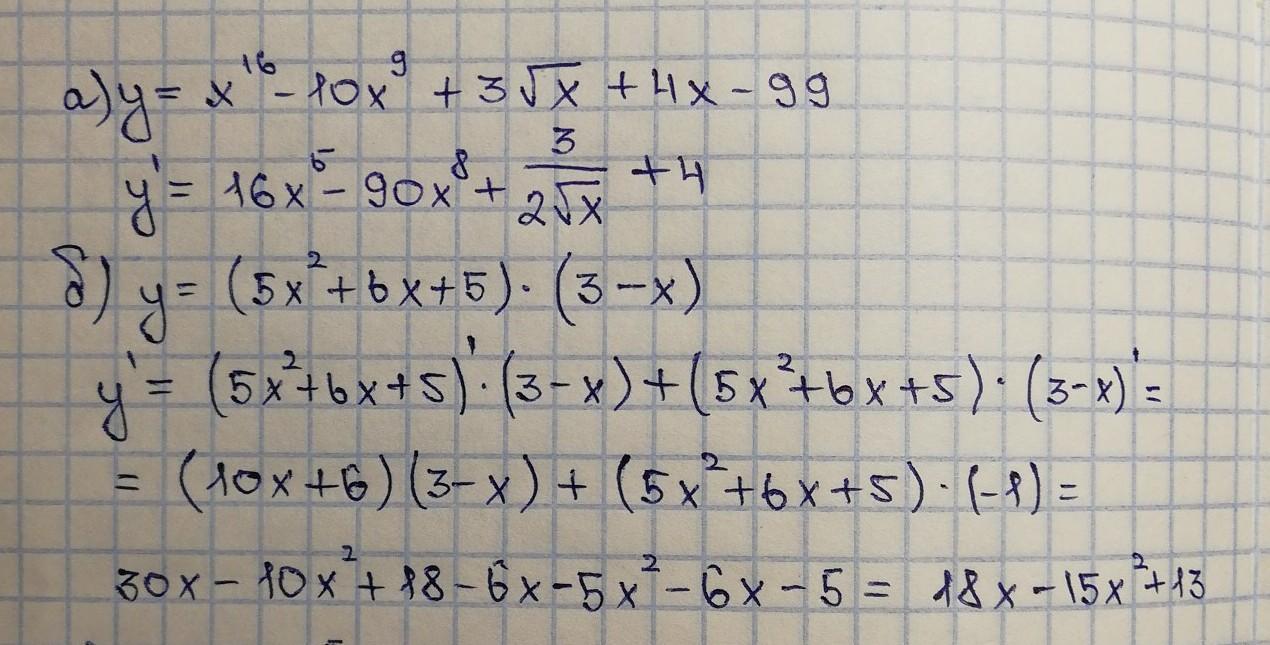 а) y = x¹⁶ - 10x⁹ + 3√x + 4x - 99
y' = 16x⁵ - 90x⁸ + 3/(2√x) + 4
б) y = (5x² + 6x + 5) · (3 - x)
y' = (5x² + 6x + 5)' · (3 - x) + (5x² + 6x + 5) · (3 - x)' =
= (10x + 6)(3 - x) + (5x² + 6x + 5) · (-1) =
30x - 10x² + 18 - 6x - 5x² - 6x - 5 = 18x - 15x² + 13